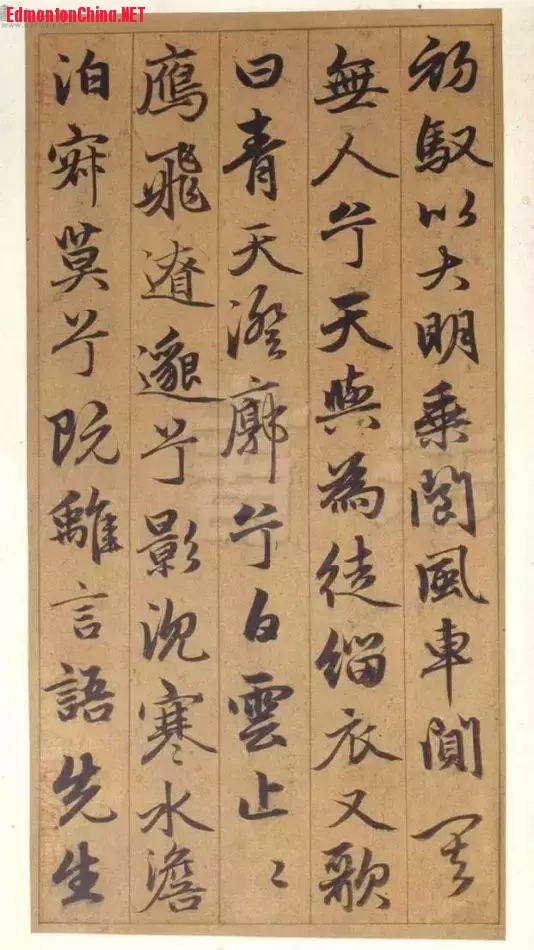 EdmontonChina.NET
初馭以大明乗閬風車閴其
無人兮天與為徒緇衣又歌
曰青天澄廓兮白雲止〻
鴈飛遼邈兮影沉寒水澹
泊寂莫兮既離言語先生